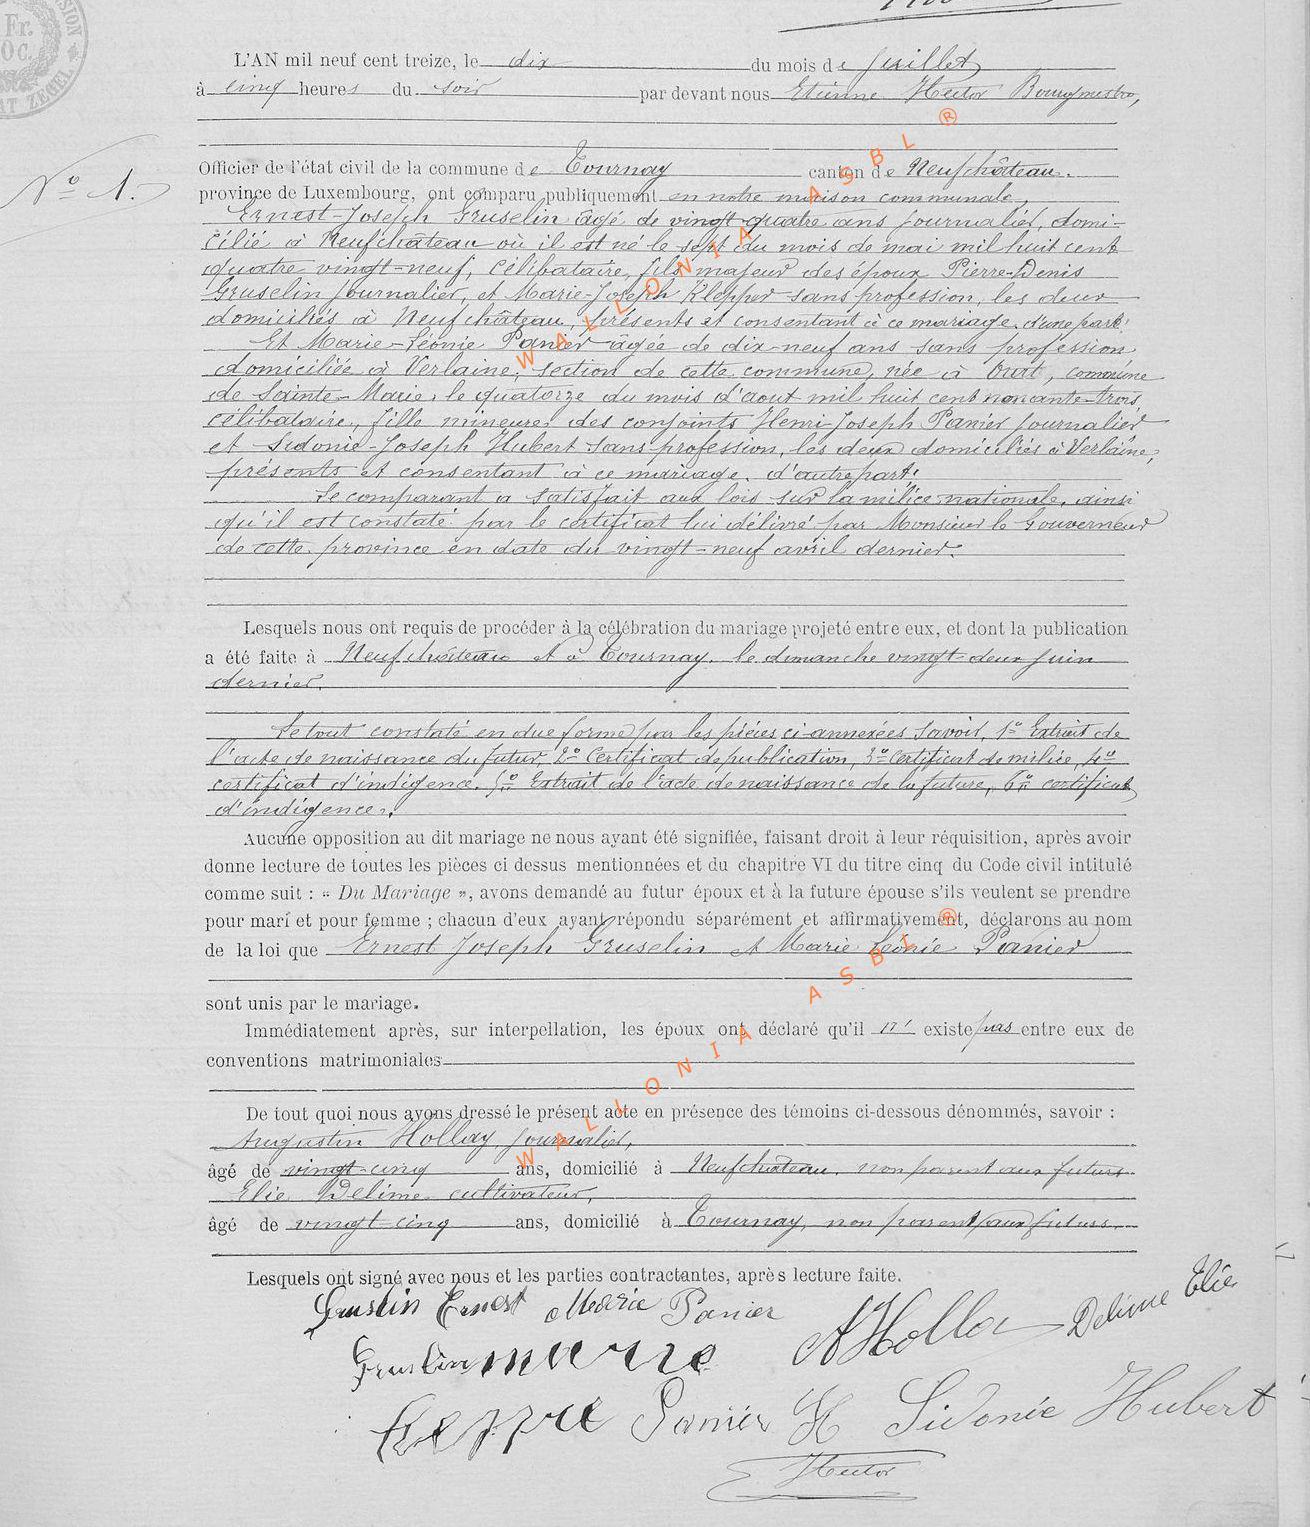 Fr.
OC.
L'AN mil neuf cent treize, le dix du mois de juillet
à cinq heures du soir par devant nous Etienne Hector Bourgmestre,
Officier de l'état civil de la commune de Tournay canton de Neufchâteau.
N° 1.
province de Luxembourg, ont comparu publiquement en notre maison communale,
Ernest-Joseph Gruselin âgé de vingt-quatre ans journalier, domi-
cilié à Neufchâteau où il est né le sept du mois de mai mil huit cent
quatre vingt-neuf, célibataire, fils majeur des époux Pierre-Denis
Gruselin journalier, et Marie-Joseph Klepper sans profession, les deux
domiciliés à Neufchâteau, présents et consentant à ce mariage. d'une part.
Et Marie-Léonie Panier âgée de dix-neuf ans sans profession
domiciliée à Verlaine, section de cette commune, née à Ourt, commune
de Sainte-Marie, le quatorze du mois d'aout mil huit cent nonante-trois,
célibataire, fille mineure des conjoints Henri-Joseph Panier journalier
et Sidonie-Joseph Hubert sans profession, les deux domiciliés à Verlaine,
présents et consentant à ce mariage. d'autre part.
Le comparant a satisfait aux lois sur la milice nationale, ainsi
qu'il est constaté par le certificat lui délivré par Monsieur le Gouverneur
de cette province en date du vingt-neuf avril dernier.
Lesquels nous ont requis de procéder à la célébration du mariage projeté entre eux, et dont la publication
a été faite à Neufchâteau et à Tournay, le dimanche vingt-deux juin
dernier.
Le tout constaté en due forme par les pièces ci-annexées savoir, 1° Extrait de
l'acte de naissance du futur, 2° Certificat de publication, 3° Certificat de milice, 4°
certificat d'indigence. 5° Extrait de l'acte de naissance de la future, 6° certificat
d'indigence.
Aucune opposition au dit mariage ne nous ayant été signifiée, faisant droit à leur réquisition, après avoir
donne lecture de toutes les pièces ci dessus mentionnées et du chapitre VI du titre cinq du Code civil intitulé
comme suit : « Du Mariage », avons demandé au futur époux et à la future épouse s'ils veulent se prendre
pour mari et pour femme ; chacun d'eux ayant répondu séparément et affirmativement, déclarons au nom
de la loi que Ernest Joseph Gruselin et Marie Léonie Panier
sont unis par le mariage.
Immédiatement après, sur interpellation, les époux ont déclaré qu'il n' existe pas entre eux de
conventions matrimoniales
De tout quoi nous avons dressé le présent acte en présence des témoins ci-dessous dénommés, savoir :
Augustin Hollay, journalier,
âgé de vingt-cinq ans, domicilié à Neufchâteau, non parent aux futurs
Elie Delime cultivateur,
âgé de vingt-cinq ans, domicilié à Tournay, non parent aux futurs.
Lesquels ont signé avec nous et les parties contractantes, après lecture faite.
Gruslin Ernest Marie Panier A Holla Delime Elie
Gruslin marie
Panier H Sidonie Hubert
Hector
WALLONIA ASBL ®
WALLONIA ASBL ®